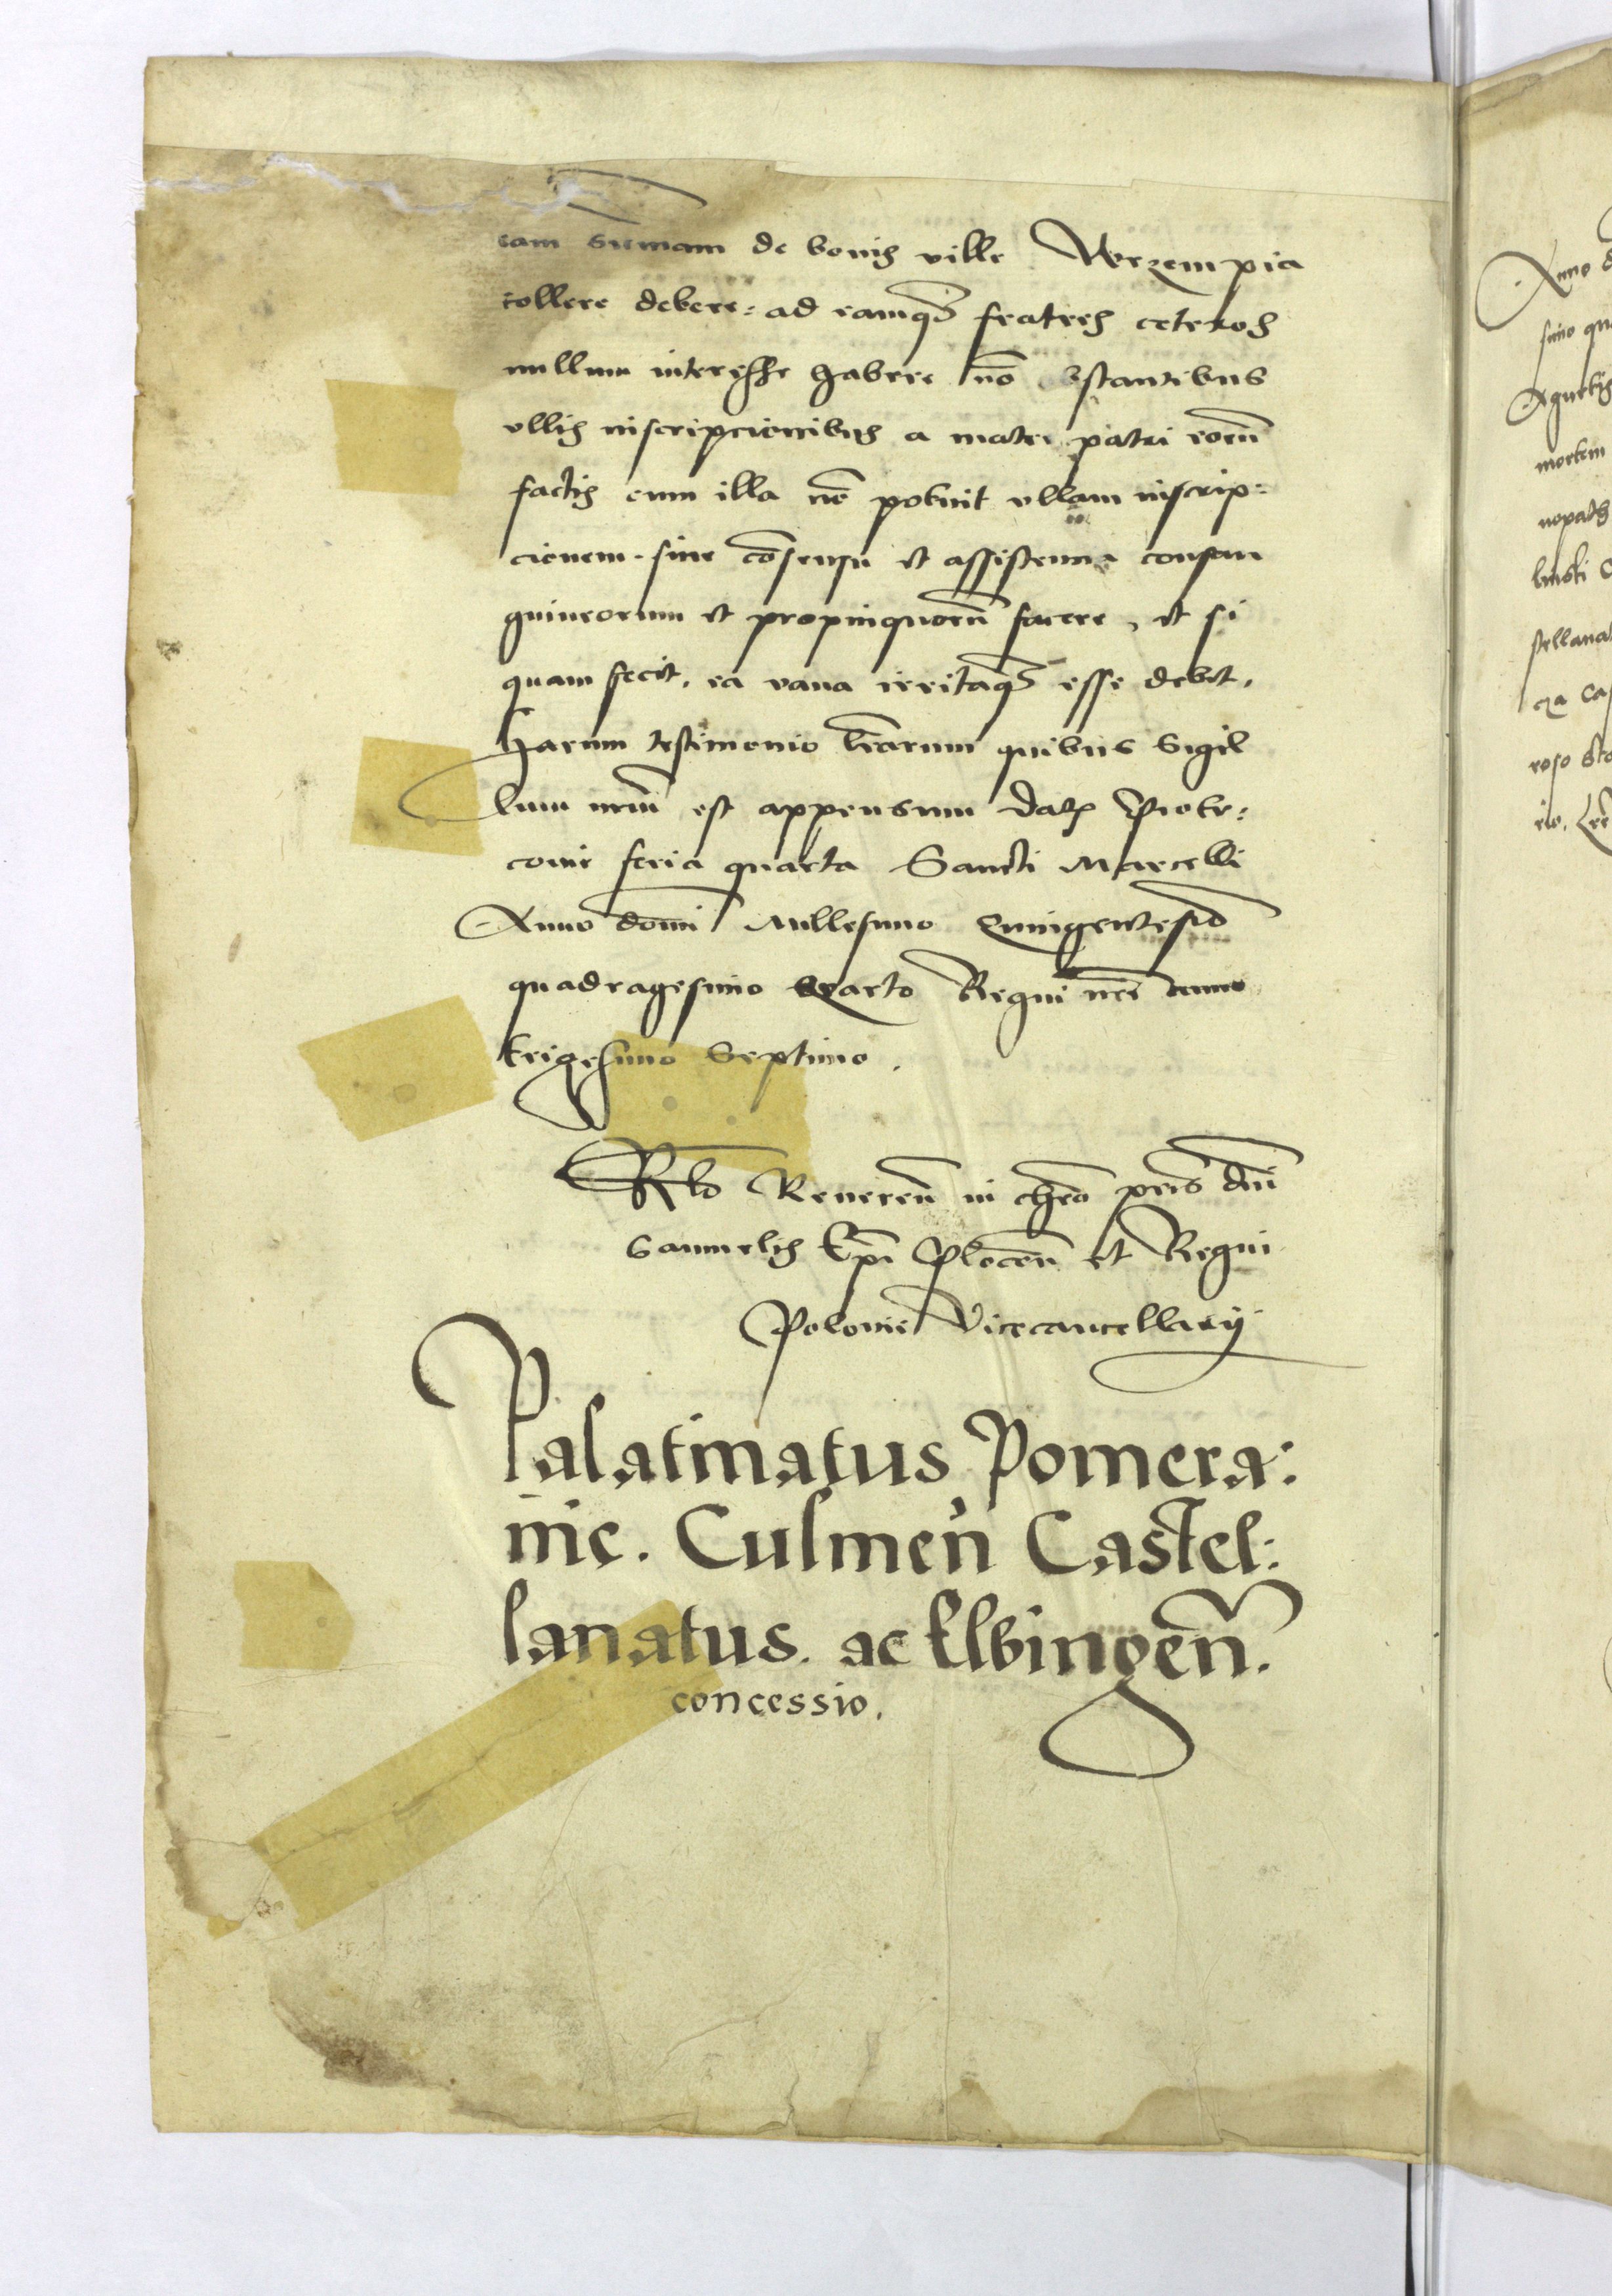 eam summam de bonis ville Wrzempia
tollere debere: ad eamq3 fratres ceteros
nullum interesse habere nō obstantibus
ullis inscripcionibus a matre patri eorū
factis cum illa nō potuit ullam inscrip:
cionem. sine cōsensu et assistencia consan
guineorum et propinquorū facere, et si
quam fecit, ea vana irritaq3 esse debet.
Harum testimonio lr̄arum quibus Sigil
lum nrm̄ est appensum dat̄ Piotr:
covie feria quarta Sancti Marcelli
Anno domī Millesimo Quingentesīo
quadragesimo Quarto Regni nrī anno
trigesimo Septimo.
Rlō Reveren̄ in chrō prīs dn̄i
Samuelis Epī Plocen̄ et Regni
Polonie Vicecancellarij
Palatinatus Pomera:
nie. Culmen̄ Castel:
lanatus. ac Elbingen̄.
concessio.
Anno
simo
mortem
stellana
cza
roso
rio.